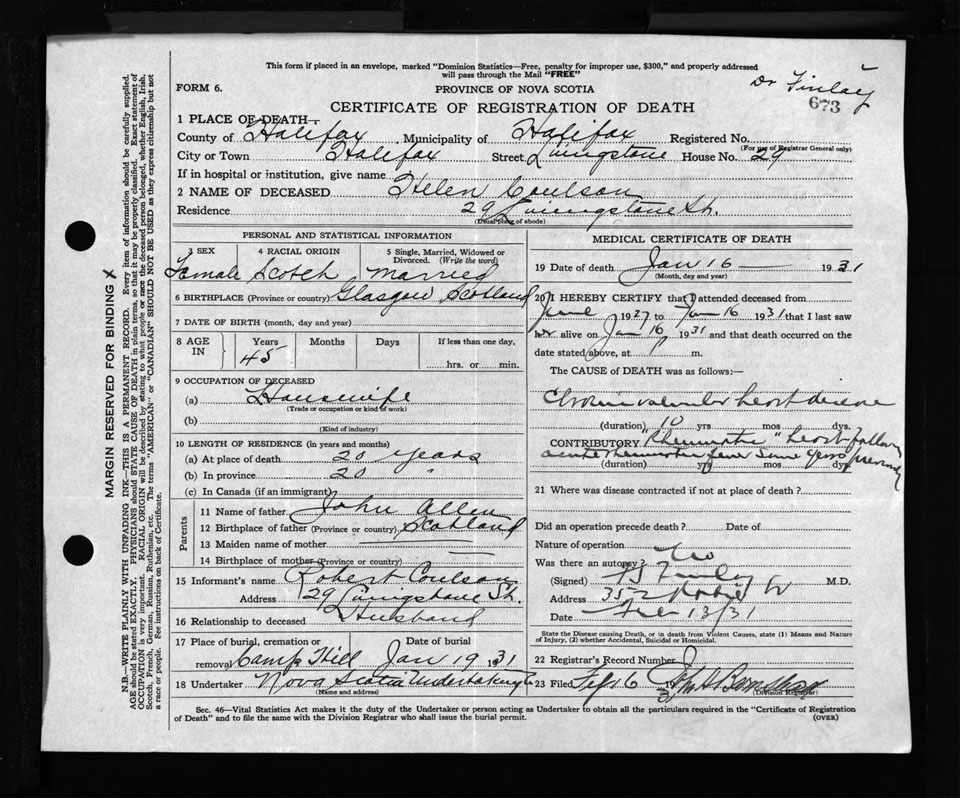 This form if placed in an envelope, marked "Dominion Statistics—Free, penalty for improper use, $300," and properly addressed
will pass through the Mail "FREE"
Dr Finlay
FORM 6.
PROVINCE OF NOVA SCOTIA
673
CERTIFICATE OF REGISTRATION OF DEATH
1 PLACE OF DEATH—
County of Halifax Municipality of Halifax Registered No.
(For use of Registrar General only)
City or Town Halifax Street Livingstone House No. 29
If in hospital or institution, give name
2 NAME OF DECEASED Helen Coulson
Residence 29 Livingstone St.
(Usual place of abode)
PERSONAL AND STATISTICAL INFORMATION
3 SEX 4 RACIAL ORIGIN 5 Single, Married, Widowed or Divorced. (Write the word)
Female Scotch Married
6 BIRTHPLACE (Province or country) Glasgow Scotland
7 DATE OF BIRTH (month, day and year)
8 AGE IN Years Months Days If less than one day,
45 hrs. or min.
9 OCCUPATION OF DECEASED
(a) Housewife
(Trade or occupation or kind of work)
(b)
(Kind of industry)
10 LENGTH OF RESIDENCE (in years and months)
(a) At place of death 20 years
(b) In province 20 "
(c) In Canada (if an immigrant)
Parents
11 Name of father John Allen
12 Birthplace of father (Province or country) Scotland
13 Maiden name of mother
14 Birthplace of mother (Province or country)
15 Informant's name Robert Coulson
Address 29 Livingstone St.
16 Relationship to deceased Husband
17 Place of burial, cremation or removal Date of burial
Camp Hill Jan 19 1931
18 Undertaker Nova Scotia Undertaking Co
(Name and address)
MEDICAL CERTIFICATE OF DEATH
19 Date of death Jan 16 — 1931
(Month, day and year)
20 I HEREBY CERTIFY that I attended deceased from
June 1927 to Jan 16 1931 that I last saw
her alive on Jan 16 1931 and that death occurred on the
date stated above, at m.
The CAUSE of DEATH was as follows:—
Chronic valvular heart disease
(duration) 10 yrs mos. dys.
CONTRIBUTORY "Rheumatic" heart following
acute rheumatic fever some years previously
(duration) yrs mos. dys.
21 Where was disease contracted if not at place of death?
Did an operation precede death? Date of
Nature of operation
Was there an autopsy? No
(Signed) Finlay M.D.
Address 352 Robie St
Date Feb 13/31
State the Disease causing Death, or in death from Violent Causes, state (1) Means and Nature
of Injury, (2) whether Accidental, Suicidal or Homicidal.
22 Registrar's Record Number
23 Filed Feb 16 31
(Division Registrar)
Sec. 46—Vital Statistics Act makes it the duty of the Undertaker or person acting as Undertaker to obtain all the particulars required in the "Certificate of Registration
of Death" and to file the same with the Division Registrar who shall issue the burial permit.
(OVER)
MARGIN RESERVED FOR BINDING X
N.B.—WRITE PLAINLY WITH UNFADING INK—THIS IS A PERMANENT RECORD. Every item of information should be carefully supplied.
AGE should be stated EXACTLY. PHYSICIANS should STATE CAUSE OF DEATH in plain terms, so that it may be properly classified. Exact statement of
OCCUPATION is very important. RACIAL ORIGIN will be described by stating to what people or race the deceased person belonged, whether English, Irish,
Scotch, French, German, Russian, Ruthenian, etc. The terms "AMERICAN" or "CANADIAN" SHOULD NOT BE USED as they express citizenship but not
a race or people. See instructions on back of Certificate.